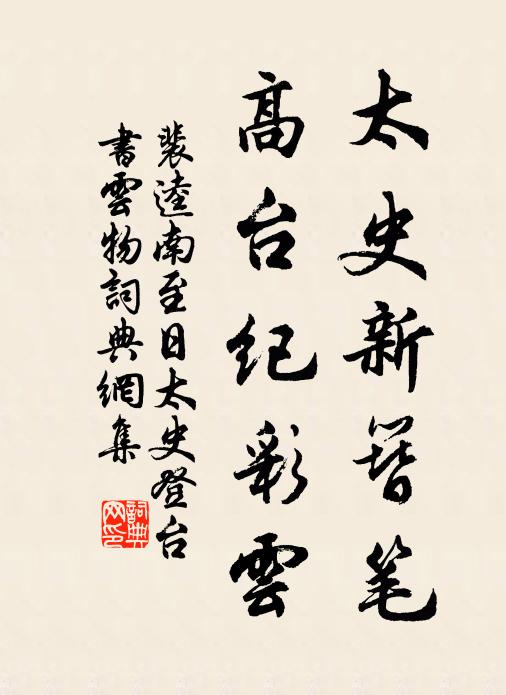 太史新簪笔
高台纪彩雲
裴逵南至日太史登台
書雲物詞典網集
詞典
网印